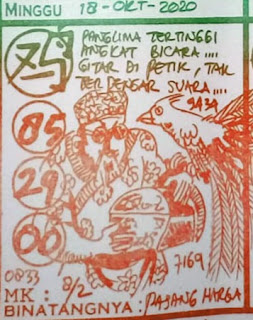 MINGGU 18-OKT-2020
75
PANGLIMA TERTINGGI
ANGKAT BICARA....
GITAR DI PETIK, TAK
TERDENGAR SUARA....
9434
85
29
00
7169
0833
MK : 8/2
BINATANGNYA : PAJANG HARGA